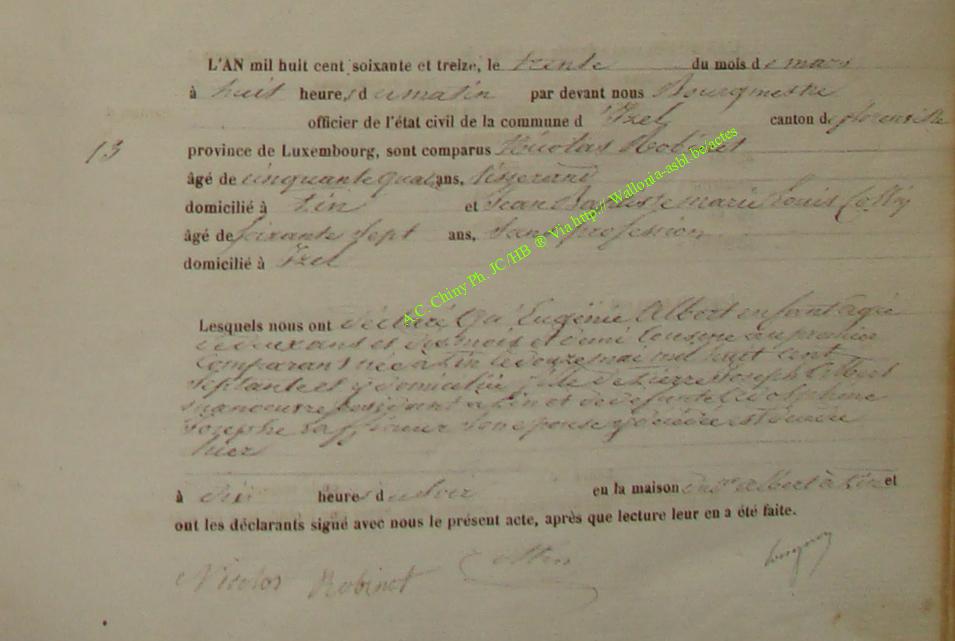 L'AN mil huit cent soixante et treize, le trente du mois de mars
à huit heures du matin par devant nous Bourgmestre
officier de l'état civil de la commune d'Izel canton de florenville
13
province de Luxembourg, sont comparus Nicolas Robinet
âgé de cinquante quatre ans, tisserand
domicilié à Pin et Jean Baptiste marie Louis Collin
âgé de soixante sept ans, Sans profession
domicilié à Izel
Lesquels nous ont déclaré Qu'Eugénie Albert enfant agée
de deux ans et dix mois et demi cousine au premier
Comparant née à Pin le douze mai mil huit cent
Septante et y domiciliée fille de Pierre Joseph Albert
manoeuvre résidant à Pin et de defunte Adolphine
Josephe son epouse décédée est décédée
hier
à dix heures du soir en la maison dud. albert à Pin et
ont les déclarants signé avec nous le présent acte, après que lecture leur en a été faite.
Nicolas Robinet Collin
A.C. Chiny Ph. JC/HB ® Via http://Wallonia-asbl.be/actes